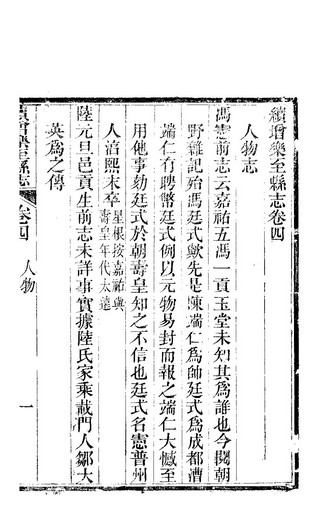 續增樂至縣志卷四
人物志
馮憲前志云嘉祐五馮一貢玉堂未知其爲誰也今攟朝
野雜記殆馮廷式歟先是陳端仁爲帥廷式爲成都漕
端仁有聘幣廷式例以元物易封而報之端仁大憾至
用他事劾廷式於朝壽皇知之不信也廷式名憲普州
人淳熙末卒星根按嘉祐與
壽皇年代太遠
陸元旦邑貢生前志未詳事實據陸氏家乘載門人鄒大
英爲之傳
續增樂至縣志
卷四
人物
一